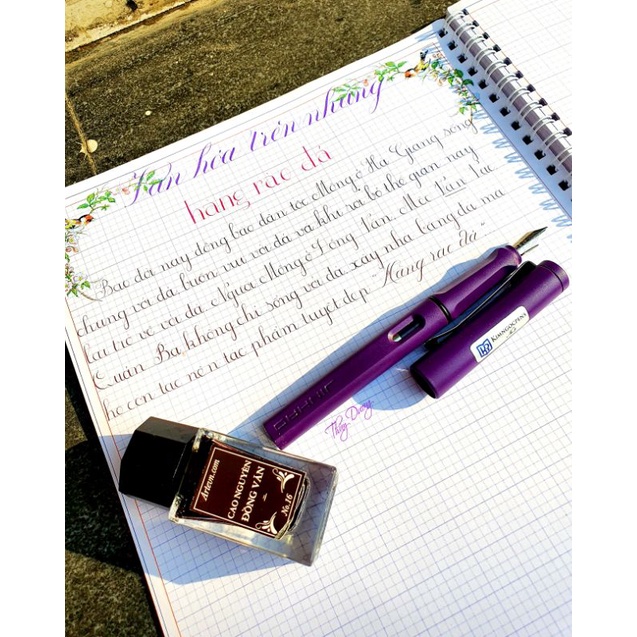 Văn hóa trên những
hàng rào đá
Bao đời nay đồng bào dân tộc Mông ở Hà Giang sống
chung với đá, buồn vui với đá và khi rời bỏ thế gian này
lại trở về với đá. Người Mông ở Đồng Văn, Mèo Vạc
Quản Bạ không chỉ sống với đá, xây nhà bằng đá mà
họ còn tạc nên tác phẩm tuyệt đẹp "Hàng rào đá"
Thùy Dương
LAMY
KHINGOCPENS
Artevn.com
CAO NGUYÊN
-
ĐỒNG VĂN
No.16